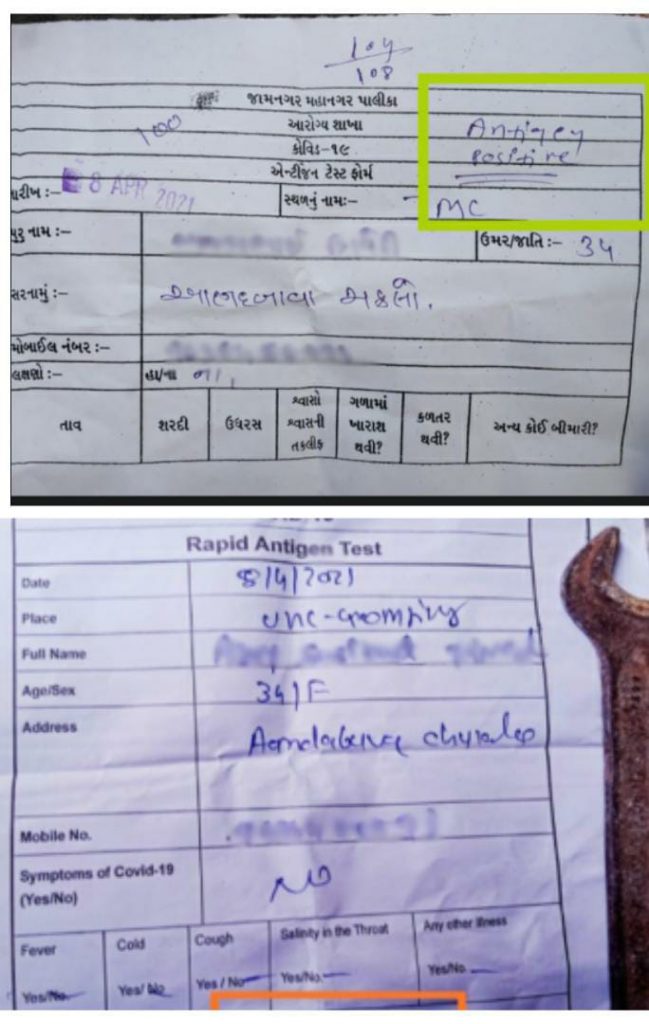 104
108
જામનગર મહાનગર પાલીકા
આરોગ્ય શાખા
100
કોવિડ-૧૯
એન્ટીજન ટેસ્ટ ફોર્મ
Antigen
Positive
તારીખ :- 8 APR 2021
સ્થળનું નામ:- MC
નામ :-
ઉંમર/જાતિ :- 34
સરનામું :-
મોબાઈલ નંબર :-
લક્ષણો :- હા/ના ના,
તાવ શરદી ઉધરસ શ્વાસો શ્વાસની તકલીફ ગળામાં ખારાશ થવી? કળતર થવી? અન્ય કોઈ બીમારી?
Rapid Antigen Test
Date 8/4/2021
Place
Full Name
Age/Sex 34/F
Address
Mobile No.
Symptoms of Covid-19
(Yes/No) NO
Fever Cold Cough Salinity in the Throat Any other illness
Yes/No. Yes/ No Yes / No Yes/No. Yes/No